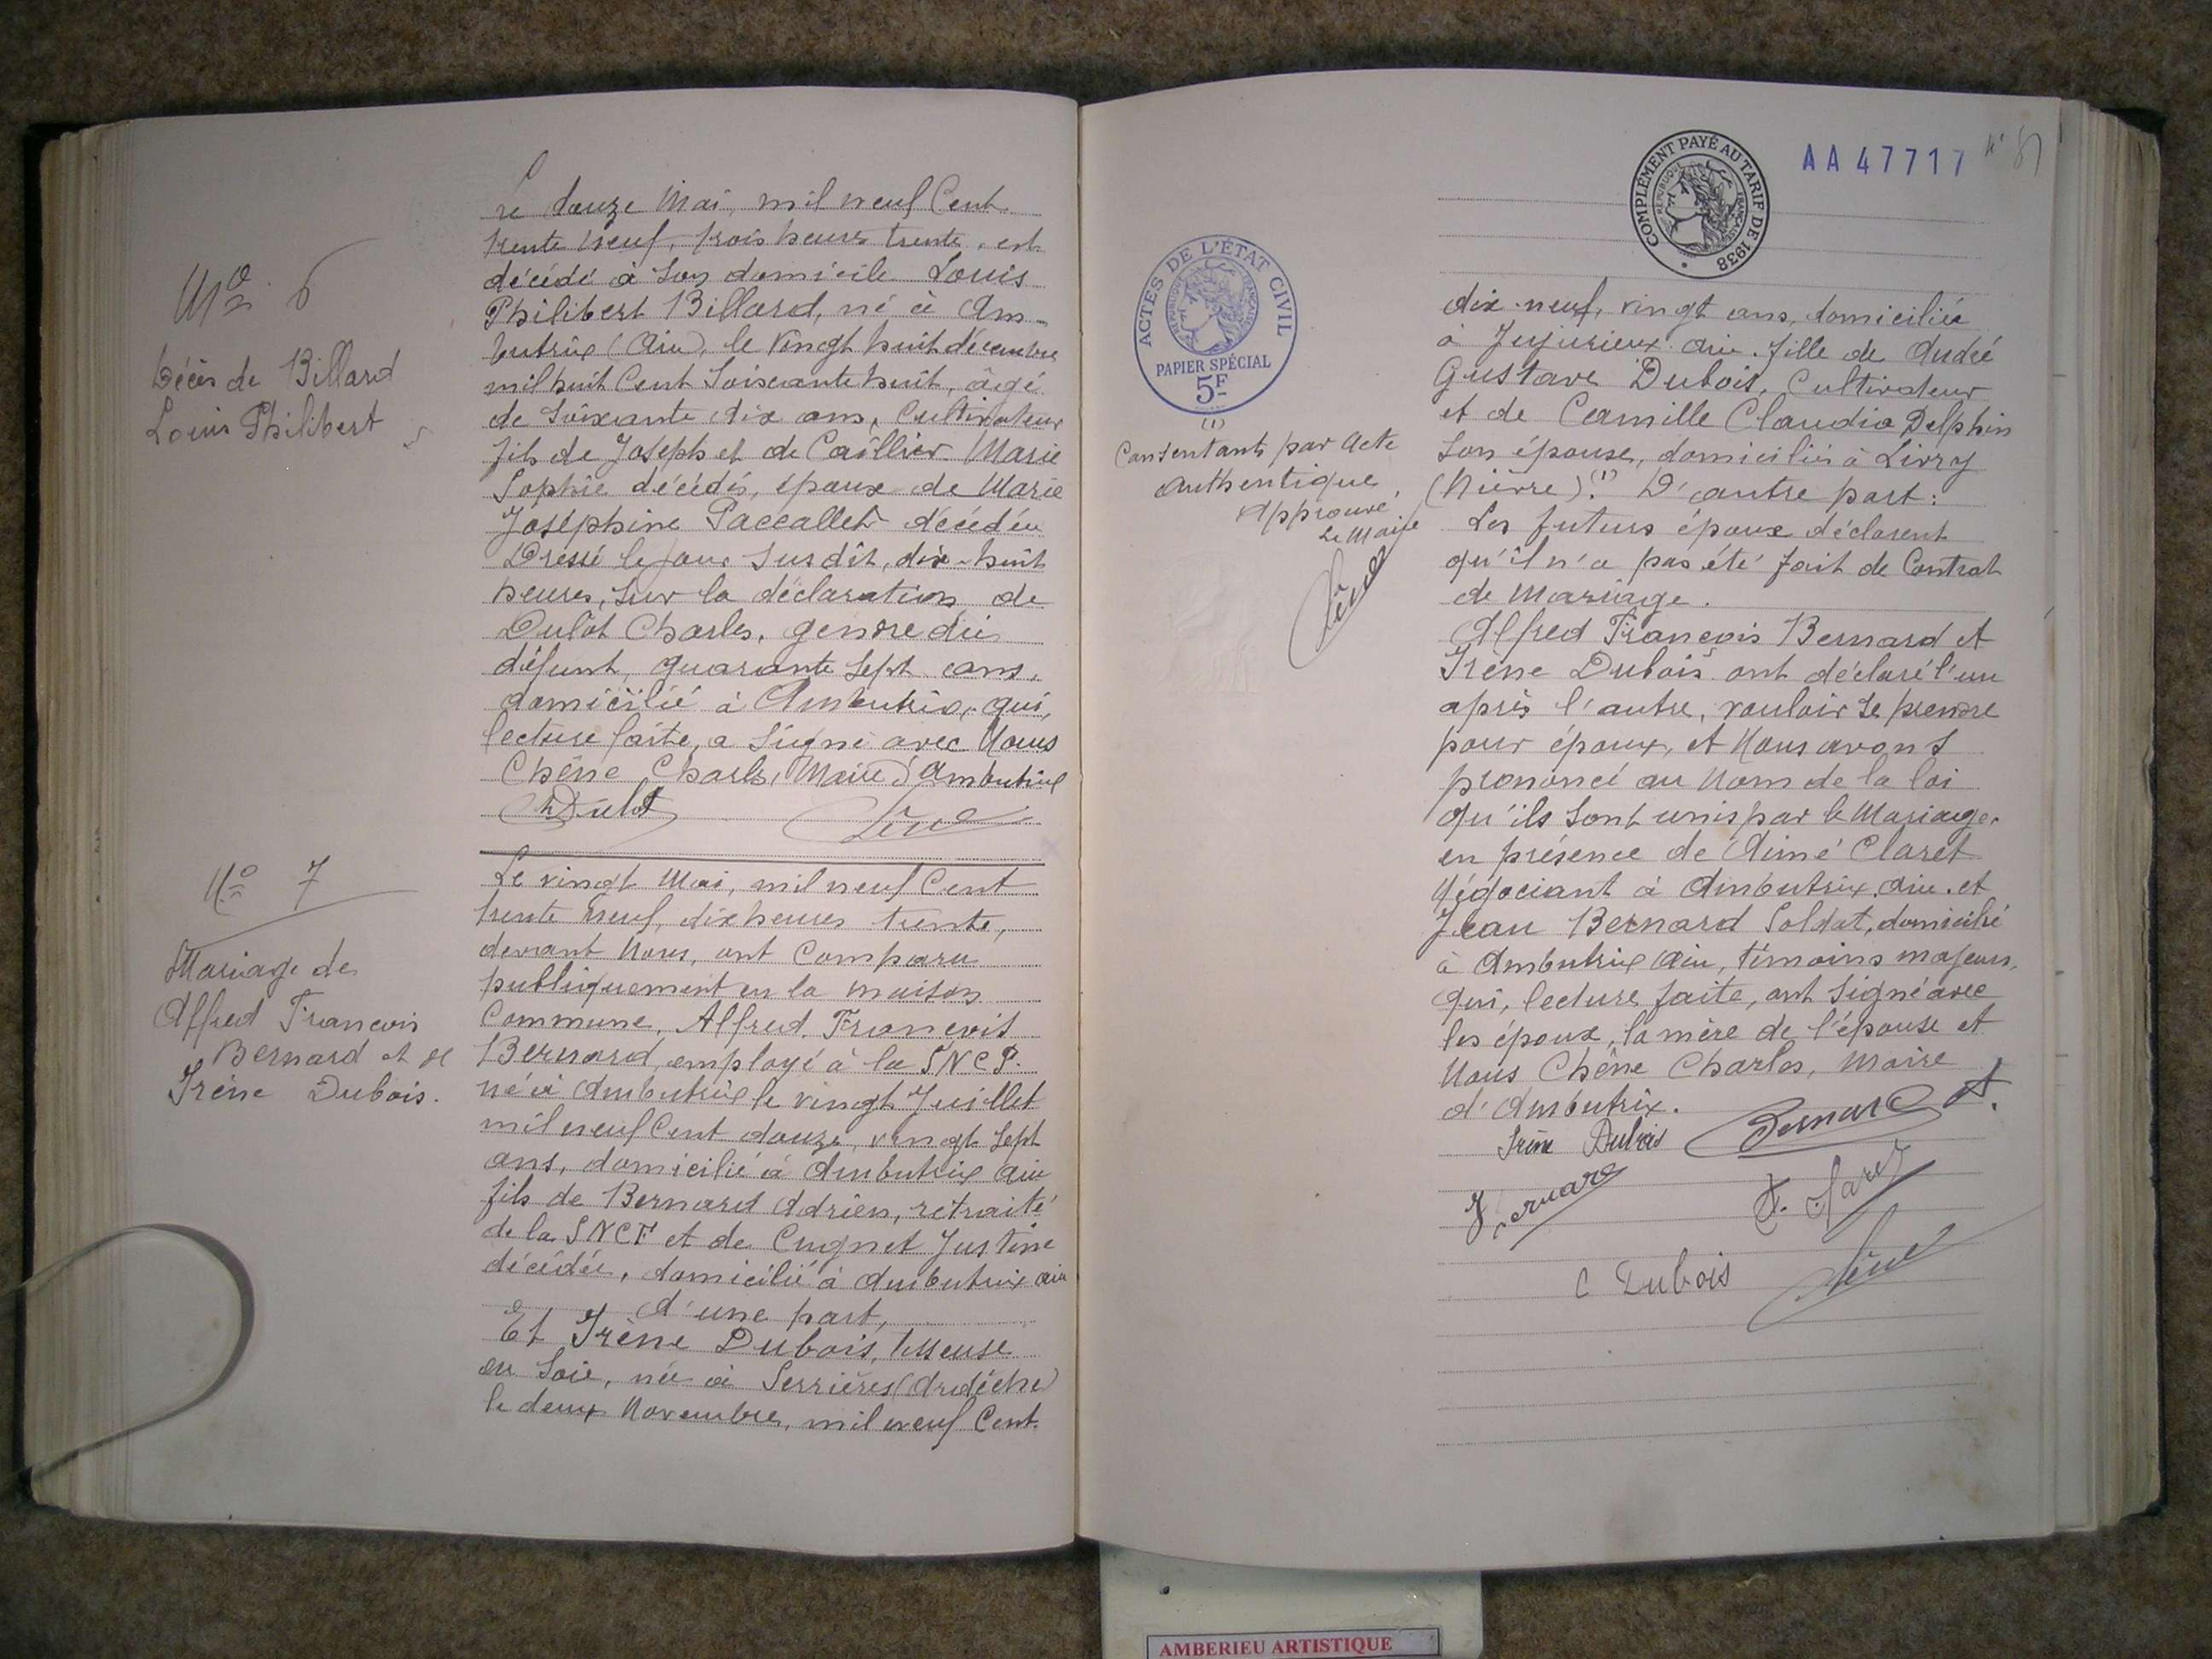 Nº 6
Décès de Billard
Louis Philibert
Le douze Mai, mil neuf Cent
trente neuf, trois heures trente, est
décédé à son domicile Louis
Philibert Billard, né à Am-
butrix (Ain), le vingt huit décembre
mil huit Cent Soixante huit, âgé
de Soixante dix ans, Cultivateur
fils de Joseph et de Caillier Marie
Sophie décédés, époux de Marie
Joséphine Paccallet décédée
Dressé le jour Susdit, dix-huit
heures, sur la déclaration de
Dulôt Charles, gendre du
défunt, quarante sept ans,
domicilié à Ambutrix, qui,
lecture faite, a signé avec Nous
Chêne Charles, Maire d'Ambutrix
Ch Dulot Chêne
Nº 7
Mariage de
Alfred François
Bernard et de
Irène Dubois.
Le vingt Mai, mil neuf Cent
trente neuf, dix heures trente,
devant Nous, ont Comparu
publiquement en la maison
Commune, Alfred François
Bernard, employé à la SNCF.
né à Ambutrix le vingt Juillet
mil neuf Cent douze, vingt sept
ans, domicilié à Ambutrix Ain
fils de Bernard Adrien, retraité
de la SNCF et de Cugnet Justine
décédée, domicilié à Ambutrix Ain
d'une part,
Et Irène Dubois, tisseuse
en Soie, née à Serrières (Ardèche)
le deux Novembre, mil neuf Cent
COMPLÉMENT PAYÉ AU TARIF DE 1938
RÉPUBLIQUE FRANÇAISE
AA 47717
ACTES DE L'ÉTAT CIVIL
RÉPUBLIQUE FRANÇAISE
PAPIER SPÉCIAL
5F
(1)
Consentants par Acte
Authentique
Approuvé
Le Maire
Chêne
dix-neuf, vingt ans, domiciliée
à Jujurieux Ain. fille de André
Gustave Dubois, Cultivateur
et de Camille Claudia Delphin
son épouse, domiciliés à Livry
(Nièvre).(1) D'autre part:
Les futurs époux déclarent
qu'il n'a pas été fait de Contrat
de Mariage.
Alfred François Bernard et
Irène Dubois ont déclaré l'un
après l'autre, vouloir se prendre
pour époux, et Nous avons
prononcé au Nom de la loi
qu'ils sont unis par le Mariage.
en présence de Aimé Claret
Négociant à Ambutrix Ain. et
Jean Bernard Soldat, domicilié
à Ambutrix Ain, témoins majeurs,
qui, lecture faite, ont signé avec
les époux, la mère de l'épouse et
Nous Chêne Charles, Maire
d'Ambutrix.
Irène Dubois Bernard A.
J Bernard A. Claret
C Dubois Chêne
AMBERIEU ARTISTIQUE